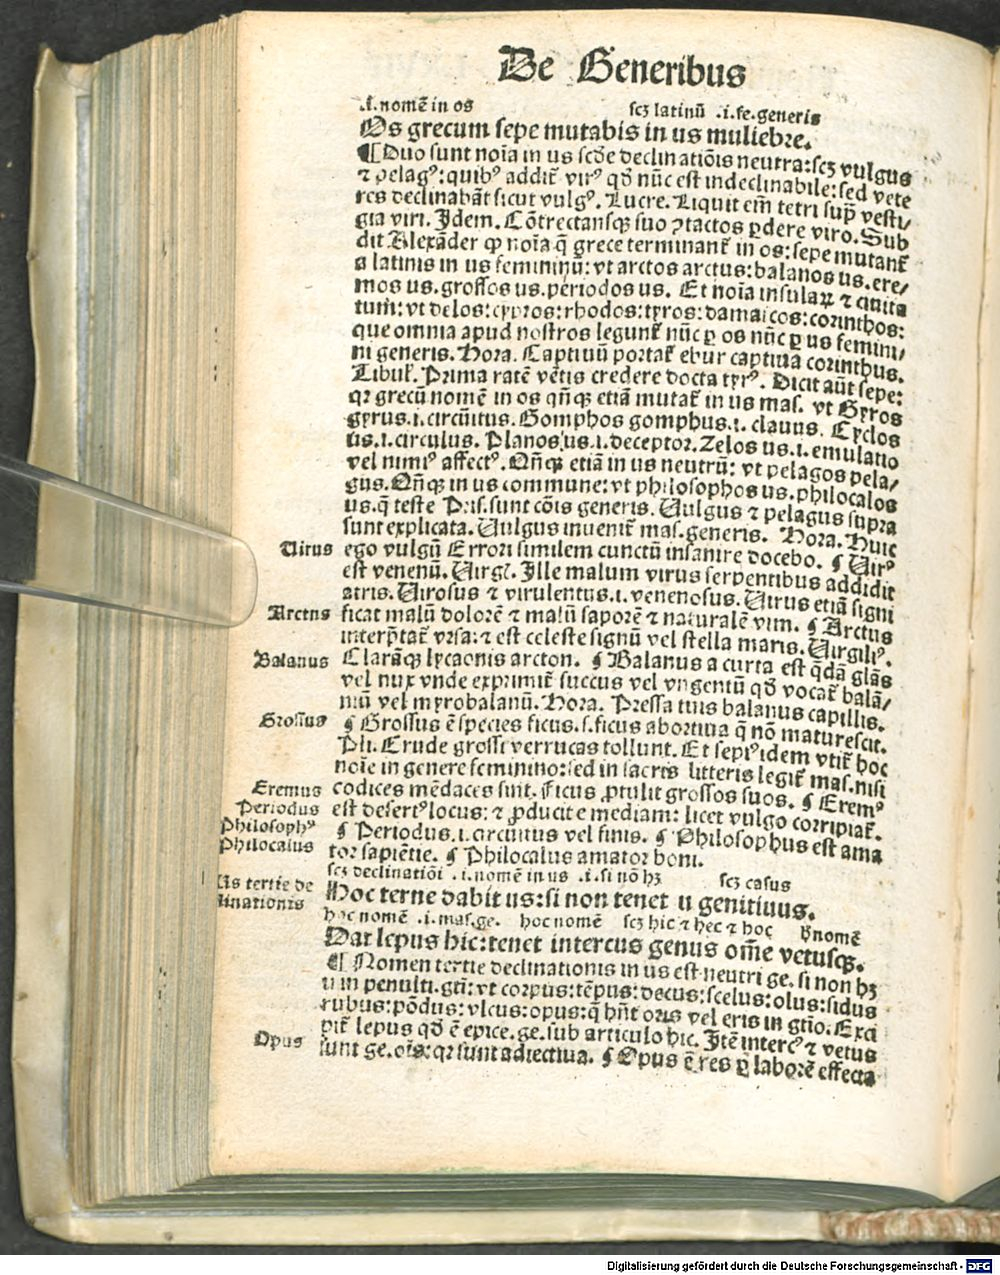 De Generibus
.i. nomē in os scʒ latinū .i. fe. generis
Os grecum sepe mutabis in us muliebre.
¶ Duo sunt noīa in us scḋe declinatiōis neutra: scʒ vulgus
⁊ pelagꝰ: quibꝰ addit̄ virꝰ qḋ nūc est indeclinabile: sed vete
res declinabāt sicut vulgꝰ. Lucre. Liquit em̄ tetri sup̄ vesti/
gia viri. Idem. Cōtrectansqꝫ suo ꝯtactos ꝑdere viro. Sub
dit Alexāder ꝙ noīa q̄ grece terminant̄ in os: sepe mutant̄
a latinis in us femininū: vt arctos arctus: balanos us. ere/
mos us. grossos us. periodos us. Et noīa insulaꝝ ⁊ ciuita
tum: vt delos: cypros: rhodos: tyros: damascos: corinthos:
que omnia apud nostros legunt̄ nūc ꝑ os nūc ꝑ us femini/
ni generis. Hora. Captiuū portat̄ ebur captiua corinthus.
Tibul̄. Prima ratē vētis credere docta tyrꝰ. Dicit aūt sepe:
qr grecū nomē in os qn̄qꝫ etiā mutat̄ in us mas. vt Gyros
gyrus .i. circūitus. Gomphos gomphus .i. clauus. Cyclos
us .i. circulus. Planos us .i. deceptor. Zelos us .i. emulatio
vel nimiꝰ affectꝰ. Qn̄qꝫ etiā in us neutrū: vt pelagos pela/
gus. Qn̄qꝫ in us commune: vt philosophos us. philocalos
us. q̄ teste Pris. sunt cōis generis. Vulgus ⁊ pelagus supra
sunt explicata. Vulgus inuenit̄ mas. generis. Hora. Huic
Virus ego vulgū Errori similem cunctū insanire docebo. ¶ Virꝰ
est venenū. Virgl̄. Ille malum virus serpentibus addidit
atris. Virosus ⁊ virulentus .i. venenosus. Virus etiā signi
Arctus ficat malū dolorē ⁊ malū saporē ⁊ naturalē vim. ¶ Arctus
interp̄tat̄ vrsa: ⁊ est celeste signū vel stella maris. Virgiliꝰ.
Balanus Clarāqꝫ lycaonis arcton. ¶ Balanus a curta est q̄dā glās
vel nux vnde exprimit̄ succus vel vngentū qḋ vocat̄ balā/
niū vel myrobalanū. Hora. Pressa tuis balanus capillis.
Grossus ¶ Grossus ē species ficus. s. ficus abortiua q̄ nō maturescit.
Pli. Crude grossi verrucas tollunt. Et sepiꝰ idem vtit̄ hoc
noīe in genere feminino: sed in sacris litteris legit̄ mas. nisi
Eremus codices mēdaces sint. Ficus ꝓtulit grossos suos. ¶ Eremꝰ
Periodus est desertꝰ locus: ⁊ ꝓducit e mediam: licet vulgo corripiat̄.
Philosophꝰ ¶ Periodus .i. circuitus vel finis. ¶ Philosophus est ama
Philocalus tor sapiētie. ¶ Philocalus amator boni.
scʒ declinatiōi .i. nomē in us .i. si nō hʒ scʒ casus
Us tertie de
clinationis Hoc terne dabit us: si non tenet u genitiuus.
hoc nomē .i. mas. ge. hoc nomē scʒ hic ⁊ hec ⁊ hoc h̄ nomē
Dat lepus hic: tenet intercus genus om̄e vetusqꝫ.
¶ Nomen tertie declinationis in us est neutri ge. si non hʒ
u in penulti. gtī: vt corpus: tēpus: decus: scelus: olus: sidus
rubus: pōdus: vlcus: opus: q̄ hn̄t oris vel eris in gtīo. Exci
pit̄ lepus qḋ ē epice. ge. sub articulo hic. Itē intercꝰ ⁊ vetus
Opus sunt ge. oīs: qr sunt adiectiua. ¶ Opus ē res ꝑ laborē effecta
Digitalisierung gefördert durch die Deutsche Forschungsgemeinschaft - DFG